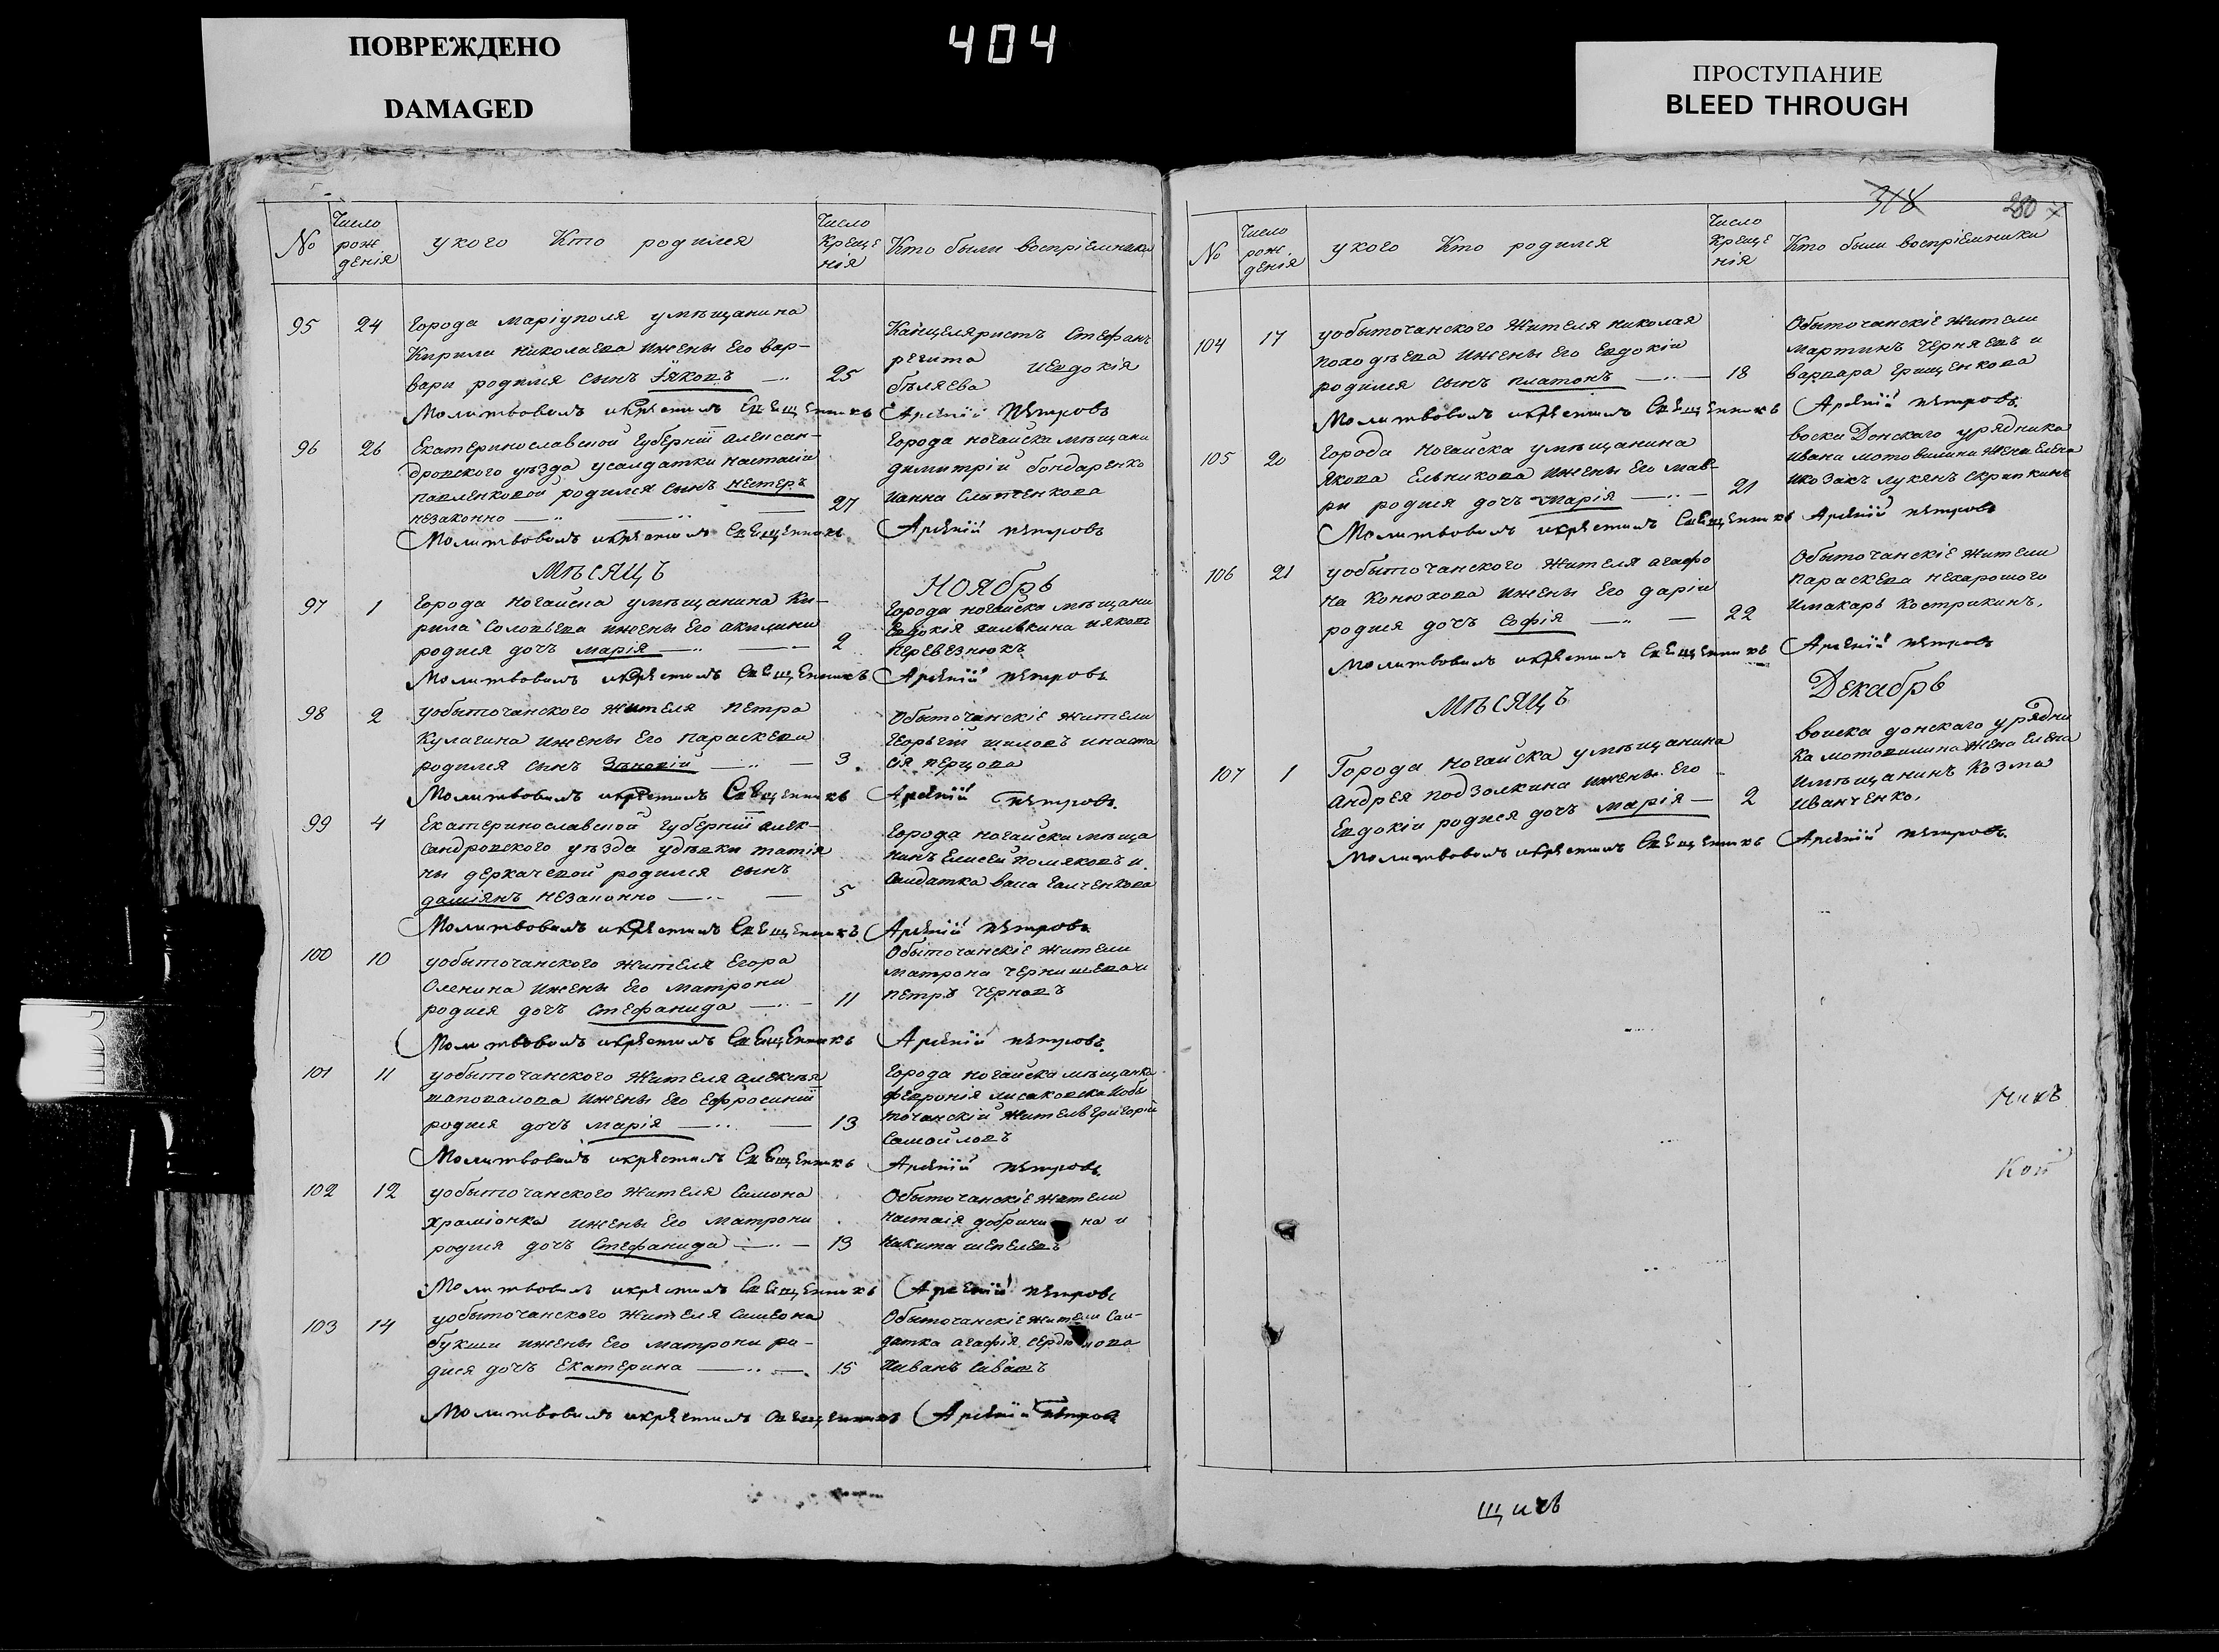 ПОВРЕЖДЕНО
DAMAGED
404
ПРОСТУПАНИЕ
BLEED THROUGH
№ Число рож денія укого Кто родился Число Креще нія Кто были воспріемники
95 24 Города Маріуполя умѣщанина
Кирила Николаева ижены Его Вар-
вари родился сынъ Іяковъ 25
Канцеляристъ Стефанъ
иЕвдокія
бѣляева
Молитвовалъ икрестилъ Священникъ Арсеній Петровъ
96 26 Екатеринославской Губерніи Алексан-
дровского уѣзда усалдатки Настасіи
Павленковой родился сынъ Нестеръ 27
незаконно
Города Ногайска мѣщани
Димитрій бондаренко
иАнна
Молитвовалъ икрестилъ Священникъ Арсеній Петровъ
Мѣсяцъ Ноябрь
97 1 Города Ногайска умѣщанина Ки-
рила Соловьева ижены Его Акилини
родися дочъ Марія 2
Города Ногайска мѣщани
Евдокія иЯковъ
Перевезнюкъ
Молитвовалъ икрестилъ Священникъ Арсеній Петровъ
98 2 уобыточанского жителя Петра
Кулагина ижены Его Параскеви
родился сынъ Зѣновій 3
Обыточанскіе жители
Георьгій шиловъ инаста
сія Перцова
Молитвовалъ икрестилъ Священникъ Арсеній Петровъ
99 4 Екатеринославской Губерніи Алек-
сандровского уѣзда удѣвки Татія
ны деркачевой родился сынъ
даміянъ незаконно 5
Города Ногайска мѣща
нинъ Елисей Поляковъ и
Салдатка васса Галченкова
Молитвовалъ икрестилъ Священникъ Арсеній Петровъ
100 10 уобыточанского жителя Егора
Оленина ижены Его Матрони
родися дочъ Стефанида 11
Обыточанскіе жители
Матрона Чернишева и
Петръ Черновъ
Молитвовалъ икрестилъ Священникъ Арсеній Петровъ
101 11 уобыточанского жителя алексѣя
шаповалова ижены Его Ефросиніи
родися дочъ Марія 13
Города Ногайска мѣщанка
Февронія лисаковска иобы
точанскій житель Григорій
Самойловъ
Молитвовалъ икрестилъ Священникъ Арсеній Петровъ
102 12 уобыточанского жителя Симона
храміонка ижены Его Матрони
родися дочъ Стефанида 13
Обыточанскіе жители
Настасія добрини на и
Никита шепелевъ
Молитвовалъ икрестилъ Священникъ Арсеній Петровъ
103 14 уобыточанского жителя Симеона
букши ижены Его Матрони ро-
дися дочъ Екатерина 15
Обыточанскіе жители Сал-
датка агафія
иИванъ Сивашъ
Молитвовалъ икрестилъ Священникъ Арсеній Петровъ
318 280
№ Число рож. денія укого Кто родился Число Креще нія Кто были воспріемники
104 17 уобыточанского жителя Николая
Походѣева ижены Его Евдокіи
родился сынъ Платонъ 18
Обыточанскіе жители
Мартинъ Черняевъ и
варвара Грищенкова
Молитвовалъ икрестилъ Священникъ Арсеній Петровъ
105 20 Города Ногайска умѣщанина
Якова Ельникова ижены Его Мав-
ри родися дочъ Марія 21
воска Донскаго урядника
Ивана мотовилина жена Елена
икозакъ лукянъ скрипкинъ
Молитвовалъ икрестилъ Священникъ Арсеній Петровъ
106 21 уобыточанского жителя агафо
на Конюхова ижены Его даріи
родися дочъ Софія 22
Обыточанскіе жители
Параскева Нехорошого
имакаръ Кострикинъ.
Молитвовалъ икрестилъ Священникъ Арсеній Петровъ
Мѣсяцъ Декабрь
107 1 Города Ногайска умѣщанина
Андрея Подзолкина ижены Его
Евдокіи родися дочъ Марія 2
воиска донскаго урядни
ка мотовилина жена Елена
имѣщанинъ Козма
Иванченко.
Молитвовалъ икрестилъ Священникъ Арсеній Петровъ
никъ
Кой